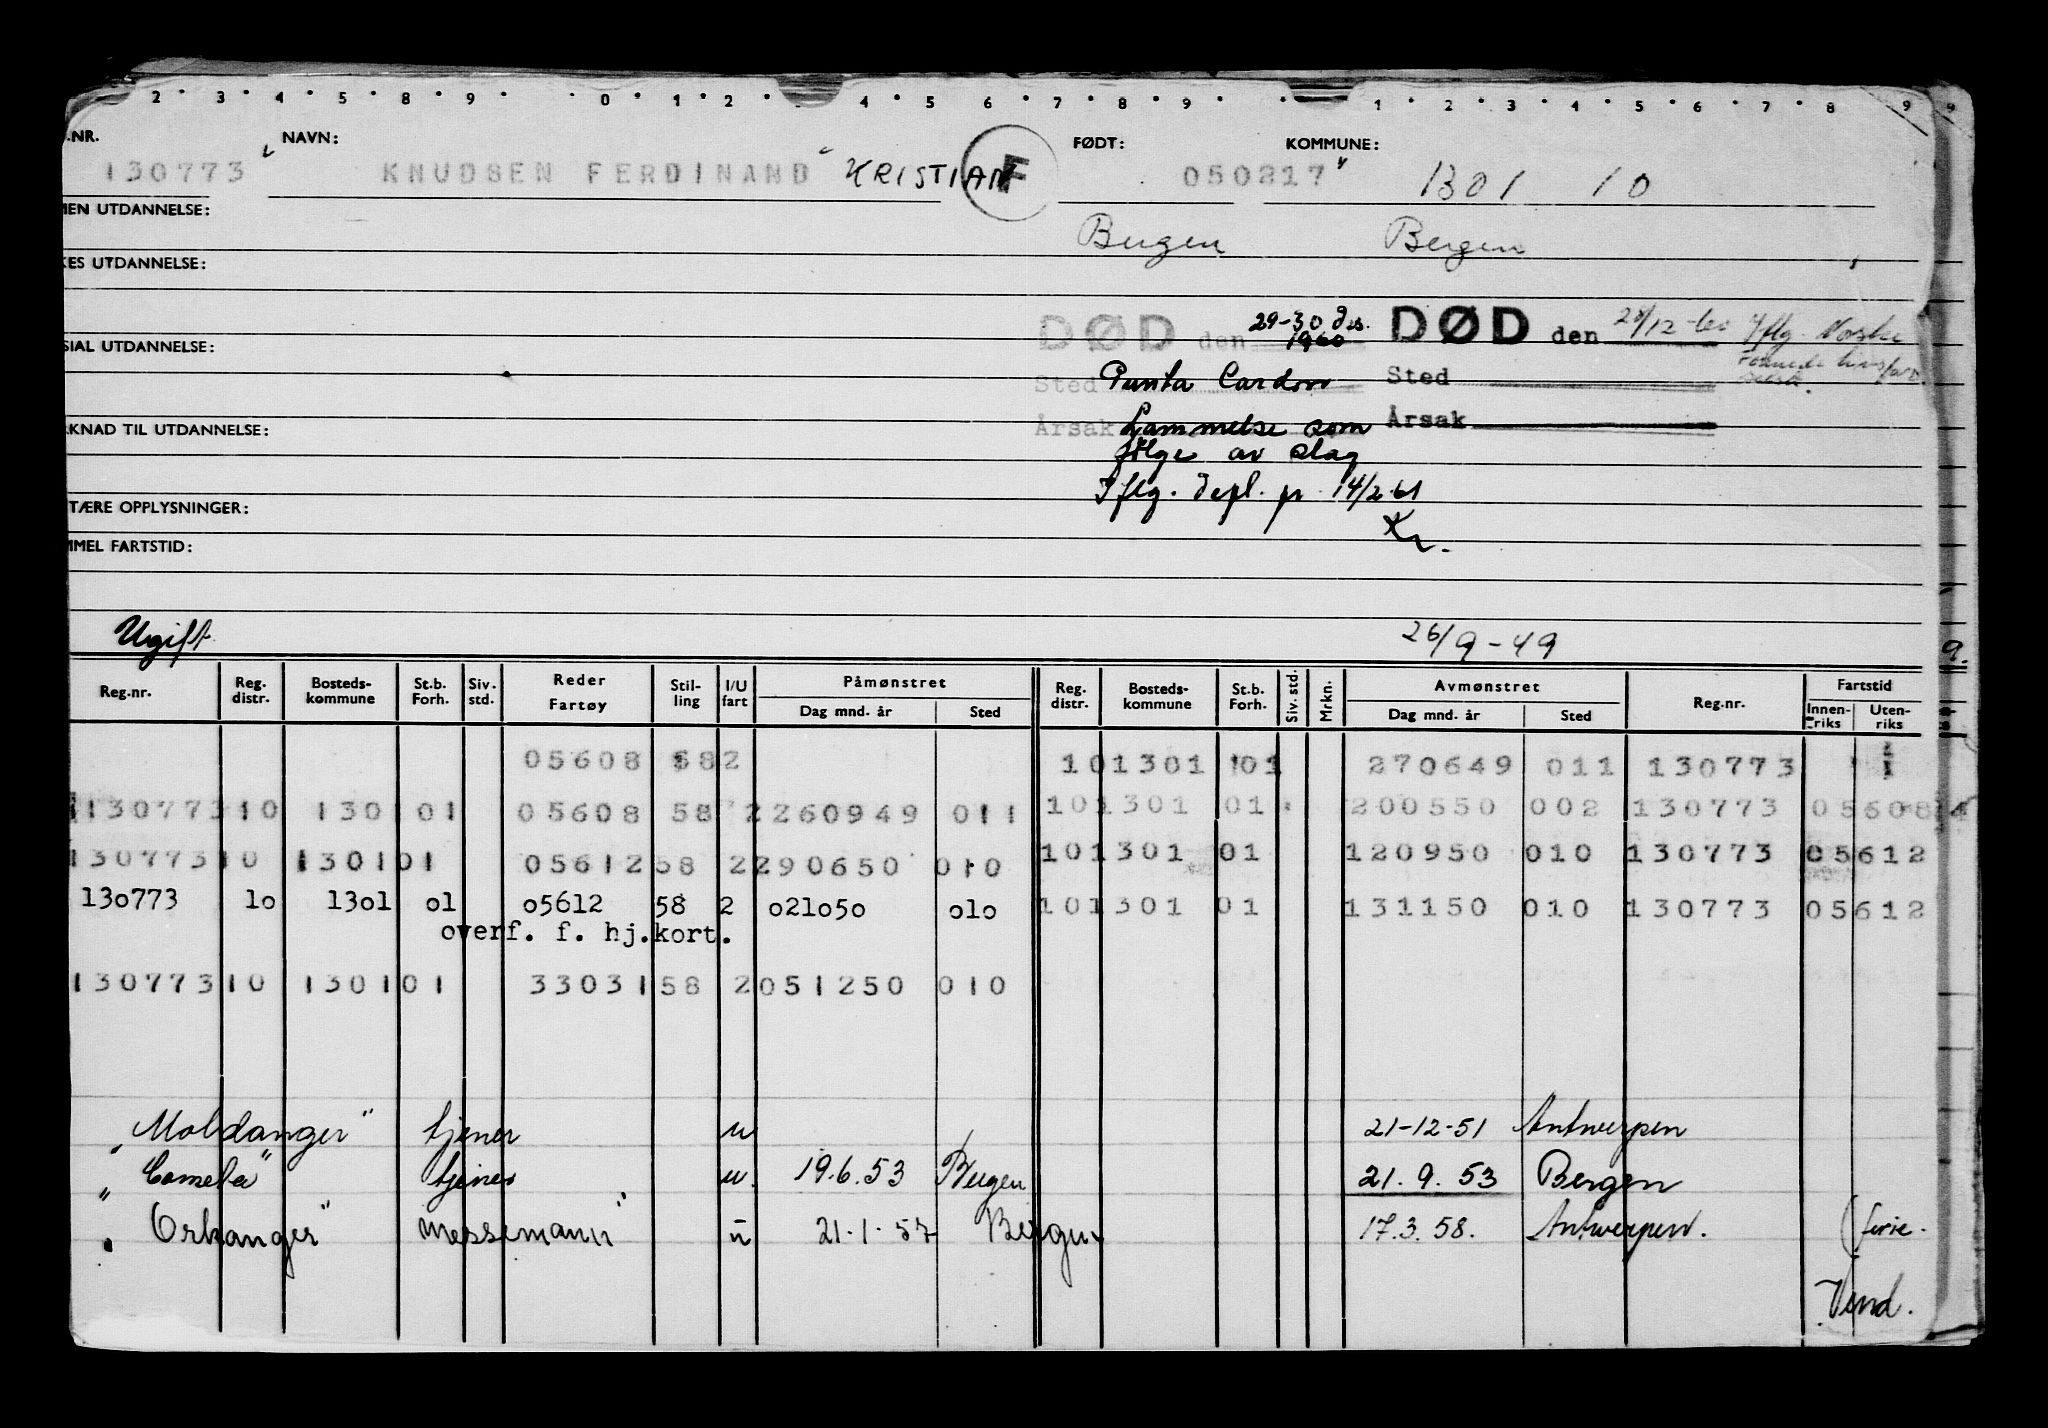 2 · 3 · 4 · 5 · 8 · 9 · · 0 · 1 · 2 · 4 · 5 · 6 · 7 · 8 · 9 · · 1 · 2 · 3 · 4 · 5 · 6 · 7 · 8 · 9 9
.NR. NAVN: FØDT: KOMMUNE:
130773 " KNUDSEN FERDINAND " KRISTIAN F 050217 " 1301 10
MEN UTDANNELSE: Bergen Bergen
KES UTDANNELSE:
DØD den 29-30 des. 1960 DØD den /12-60 Iflg. Norske
SIAL UTDANNELSE:
Sted Punta Cardon Sted
RKNAD TIL UTDANNELSE: Årsak Lammelse som Årsak
følge av slag
Iflg. depl. pr 14/2-61
TÆRE OPPLYSNINGER: Kr.
MMEL FARTSTID:
Ugift 26/9-49 9.
Reg.nr. Reg. distr. Bosteds- kommune St.b. Forh. Siv. std. Reder Fartøy Stil- ling I/U fart Påmønstret Dag mnd. år Sted Reg. distr. Bosteds- kommune St.b. Forh. Siv. std. Mrkn. Avmønstret Dag mnd. år Sted Reg.nr. Fartstid Innen- riks Uten- riks
05608 582 10 1301 01 270649 011 130773
130773 10 1301 01 05608 58 2 260949 011 10 1301 01 200550 002 130773 05608 4
130773 10 1301 01 05612 58 2 290650 010 10 1301 01 120950 010 130773 05612
130773 10 1301 01 05612 58 2 021050 010 10 1301 01 131150 010 130773 05612
overf. f. hj.kort.
130773 10 1301 01 33031 58 2 051250 010
"Moldanger" tjener u 21-12-51 Antwerpen
"Comela" tjener u. 19.6.53 Bergen 21.9.53 Bergen
"Orkanger" messemann" u 21.1.57 Bergen 17.3.58. Antwerpen. (ferie.
Vend.